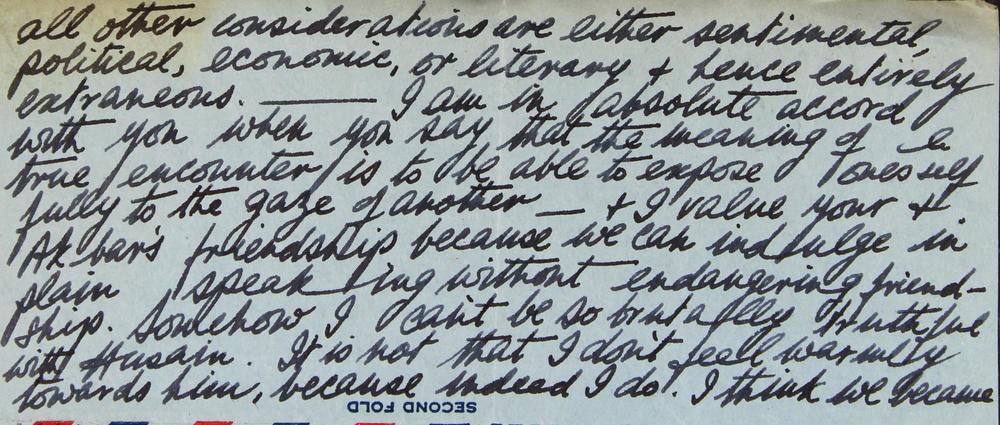 all other considerations are either sentimental,
political, economic, or literary + hence entirely
extraneous. —— I am in absolute accord
with you when you say that the meaning of a
true encounter is to be able to expose onesself
fully to the gaze of another — + I value your +
Akbar's friendship because we can indulge in
plain speaking without endangering friend-
ship. Somehow I can't be so brutally truthful
with Husain. It is not that I don't feel warmly
towards him, because indeed I do. I think we became
SECOND FOLD